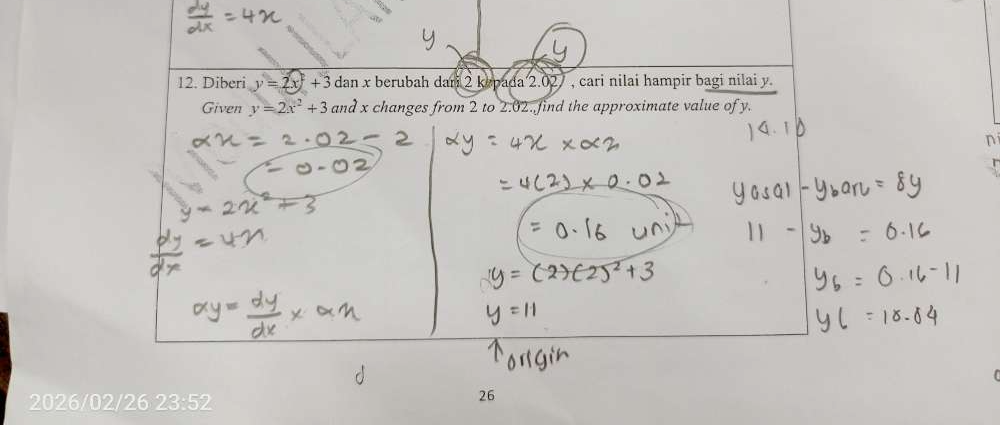 dy/dx = 4x
y
y
12. Diberi y = 2x² + 3 dan x berubah dari 2 kepada 2.02, cari nilai hampir bagi nilai y.
Given y = 2x² + 3 and x changes from 2 to 2.02, find the approximate value of y.
αx = 2.02 - 2
= 0.02
y = 2x² + 3
dy/dx = 4x
αy = dy/dx × αx
αy = 4x × αx
= 4(2) × 0.02
= 0.16 unit
y = (2)(2)² + 3
y = 11
↑ origin
yasal - ybaru = δy
11 - yb = 0.16
yb = 0.16 - 11
= 10.84
26
2026/02/26 23:52